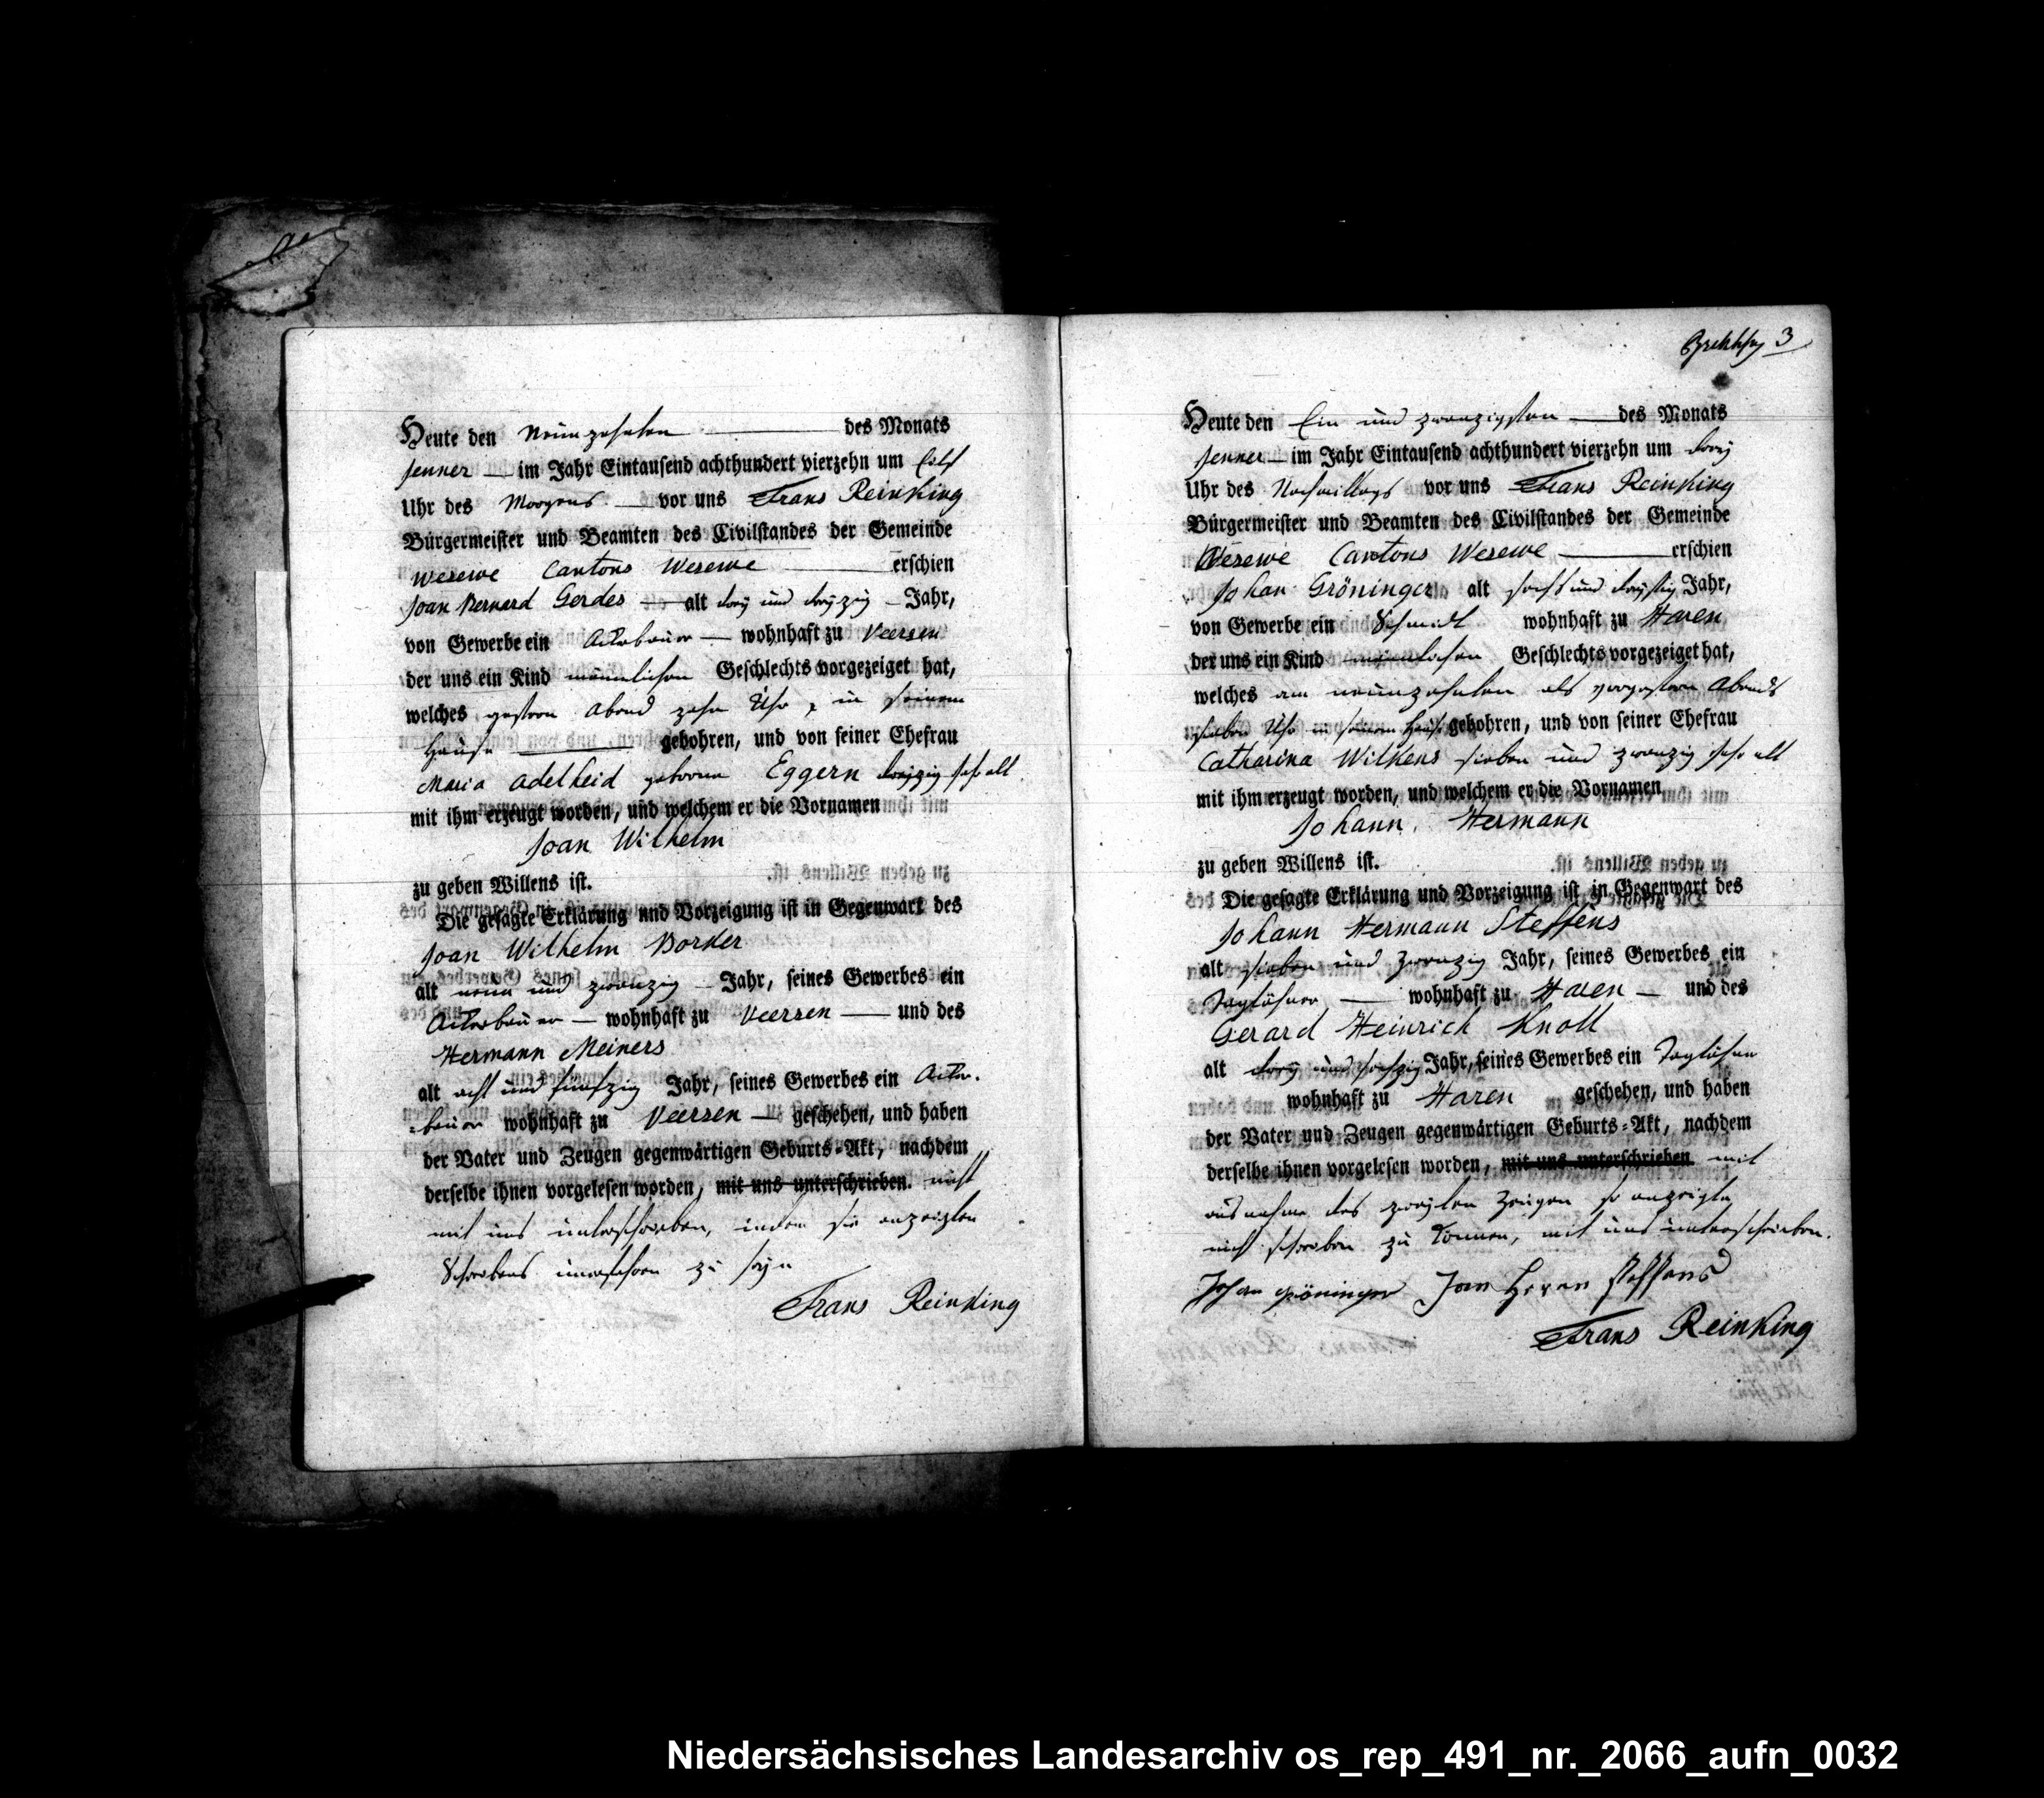 Heute den Neunzehnten des Monats
Jenner im Jahr Eintausend achthundert vierzehn um Eilf
Uhr des Morgens vor uns Frans Reinking
Bürgermeister und Beamten des Civilstandes der Gemeinde
Wesewe Cantons Wesewe erschien
Joan Bernard Gerdes alt drey und dreyzig Jahr,
von Gewerbe ein Ackerbauer wohnhaft zu Veersen
der uns ein Kind männlichen Geschlechts vorgezeiget hat,
welches gestern Abend zehn Uhr, in seinem
Hause gebohren, und von seiner Ehefrau
Maria Adelheid geborne Eggern dreyzig Jahr alt
mit ihm erzeugt worden, und welchem er die Vornamen
Joan Wilhelm
zu geben Willens ist.
Die gesagte Erklärung und Vorzeigung ist in Gegenwart des
Joan Wilhelm Borker
alt neun und zwanzig Jahr, seines Gewerbes ein
Ackerbauer wohnhaft zu Veersen und des
Hermann Meiners
alt acht und fünfzig Jahr, seines Gewerbes ein Acker-
bauer wohnhaft zu Veersen geschehen, und haben
der Vater und Zeugen gegenwärtigen Geburts-Akt, nachdem
derselbe ihnen vorgelesen worden, mit uns unterschrieben. nicht
mit uns unterschrieben, indem sie anzeigten
Schreibens unerfahren zu seyn
Frans Reinking
3
Heute den Ein und zwanzigsten des Monats
Jenner im Jahr Eintausend achthundert vierzehn um drey
Uhr des Nachmittags vor uns Frans Reinking
Bürgermeister und Beamten des Civilstandes der Gemeinde
Wesewe Cantons Wesewe erschien
Johan Gröninger alt sechs und dreyßig Jahr,
von Gewerbe ein Schmidt wohnhaft zu Haren
der uns ein Kind männlichen Geschlechts vorgezeiget hat,
welches am neunzehnten als vorgestern Abends
sieben Uhr in seinem Hause gebohren, und von seiner Ehefrau
Catharina Wilkens sieben und zwanzig Jahr alt
mit ihm erzeugt worden, und welchem er die Vornamen
Johann Hermann
zu geben Willens ist.
Die gesagte Erklärung und Vorzeigung ist in Gegenwart des
Johann Hermann Steffens
alt sieben und zwanzig Jahr, seines Gewerbes ein
Taglöhner wohnhaft zu Haren und des
Gerard Heinrich Knoll
alt drey und sechzig Jahr, seines Gewerbes ein Taglöhner
wohnhaft zu Haren geschehen, und haben
der Vater und Zeugen gegenwärtigen Geburts-Akt, nachdem
derselbe ihnen vorgelesen worden, mit uns unterschrieben mit
ausnahme des zweyten Zeugen so anzeigte
nicht schreiben zu können, mit uns unterschrieben.
Johan gröninger Jan Herm steffens
Frans Reinking
Niedersächsisches Landesarchiv os_rep_491_nr._2066_aufn_0032